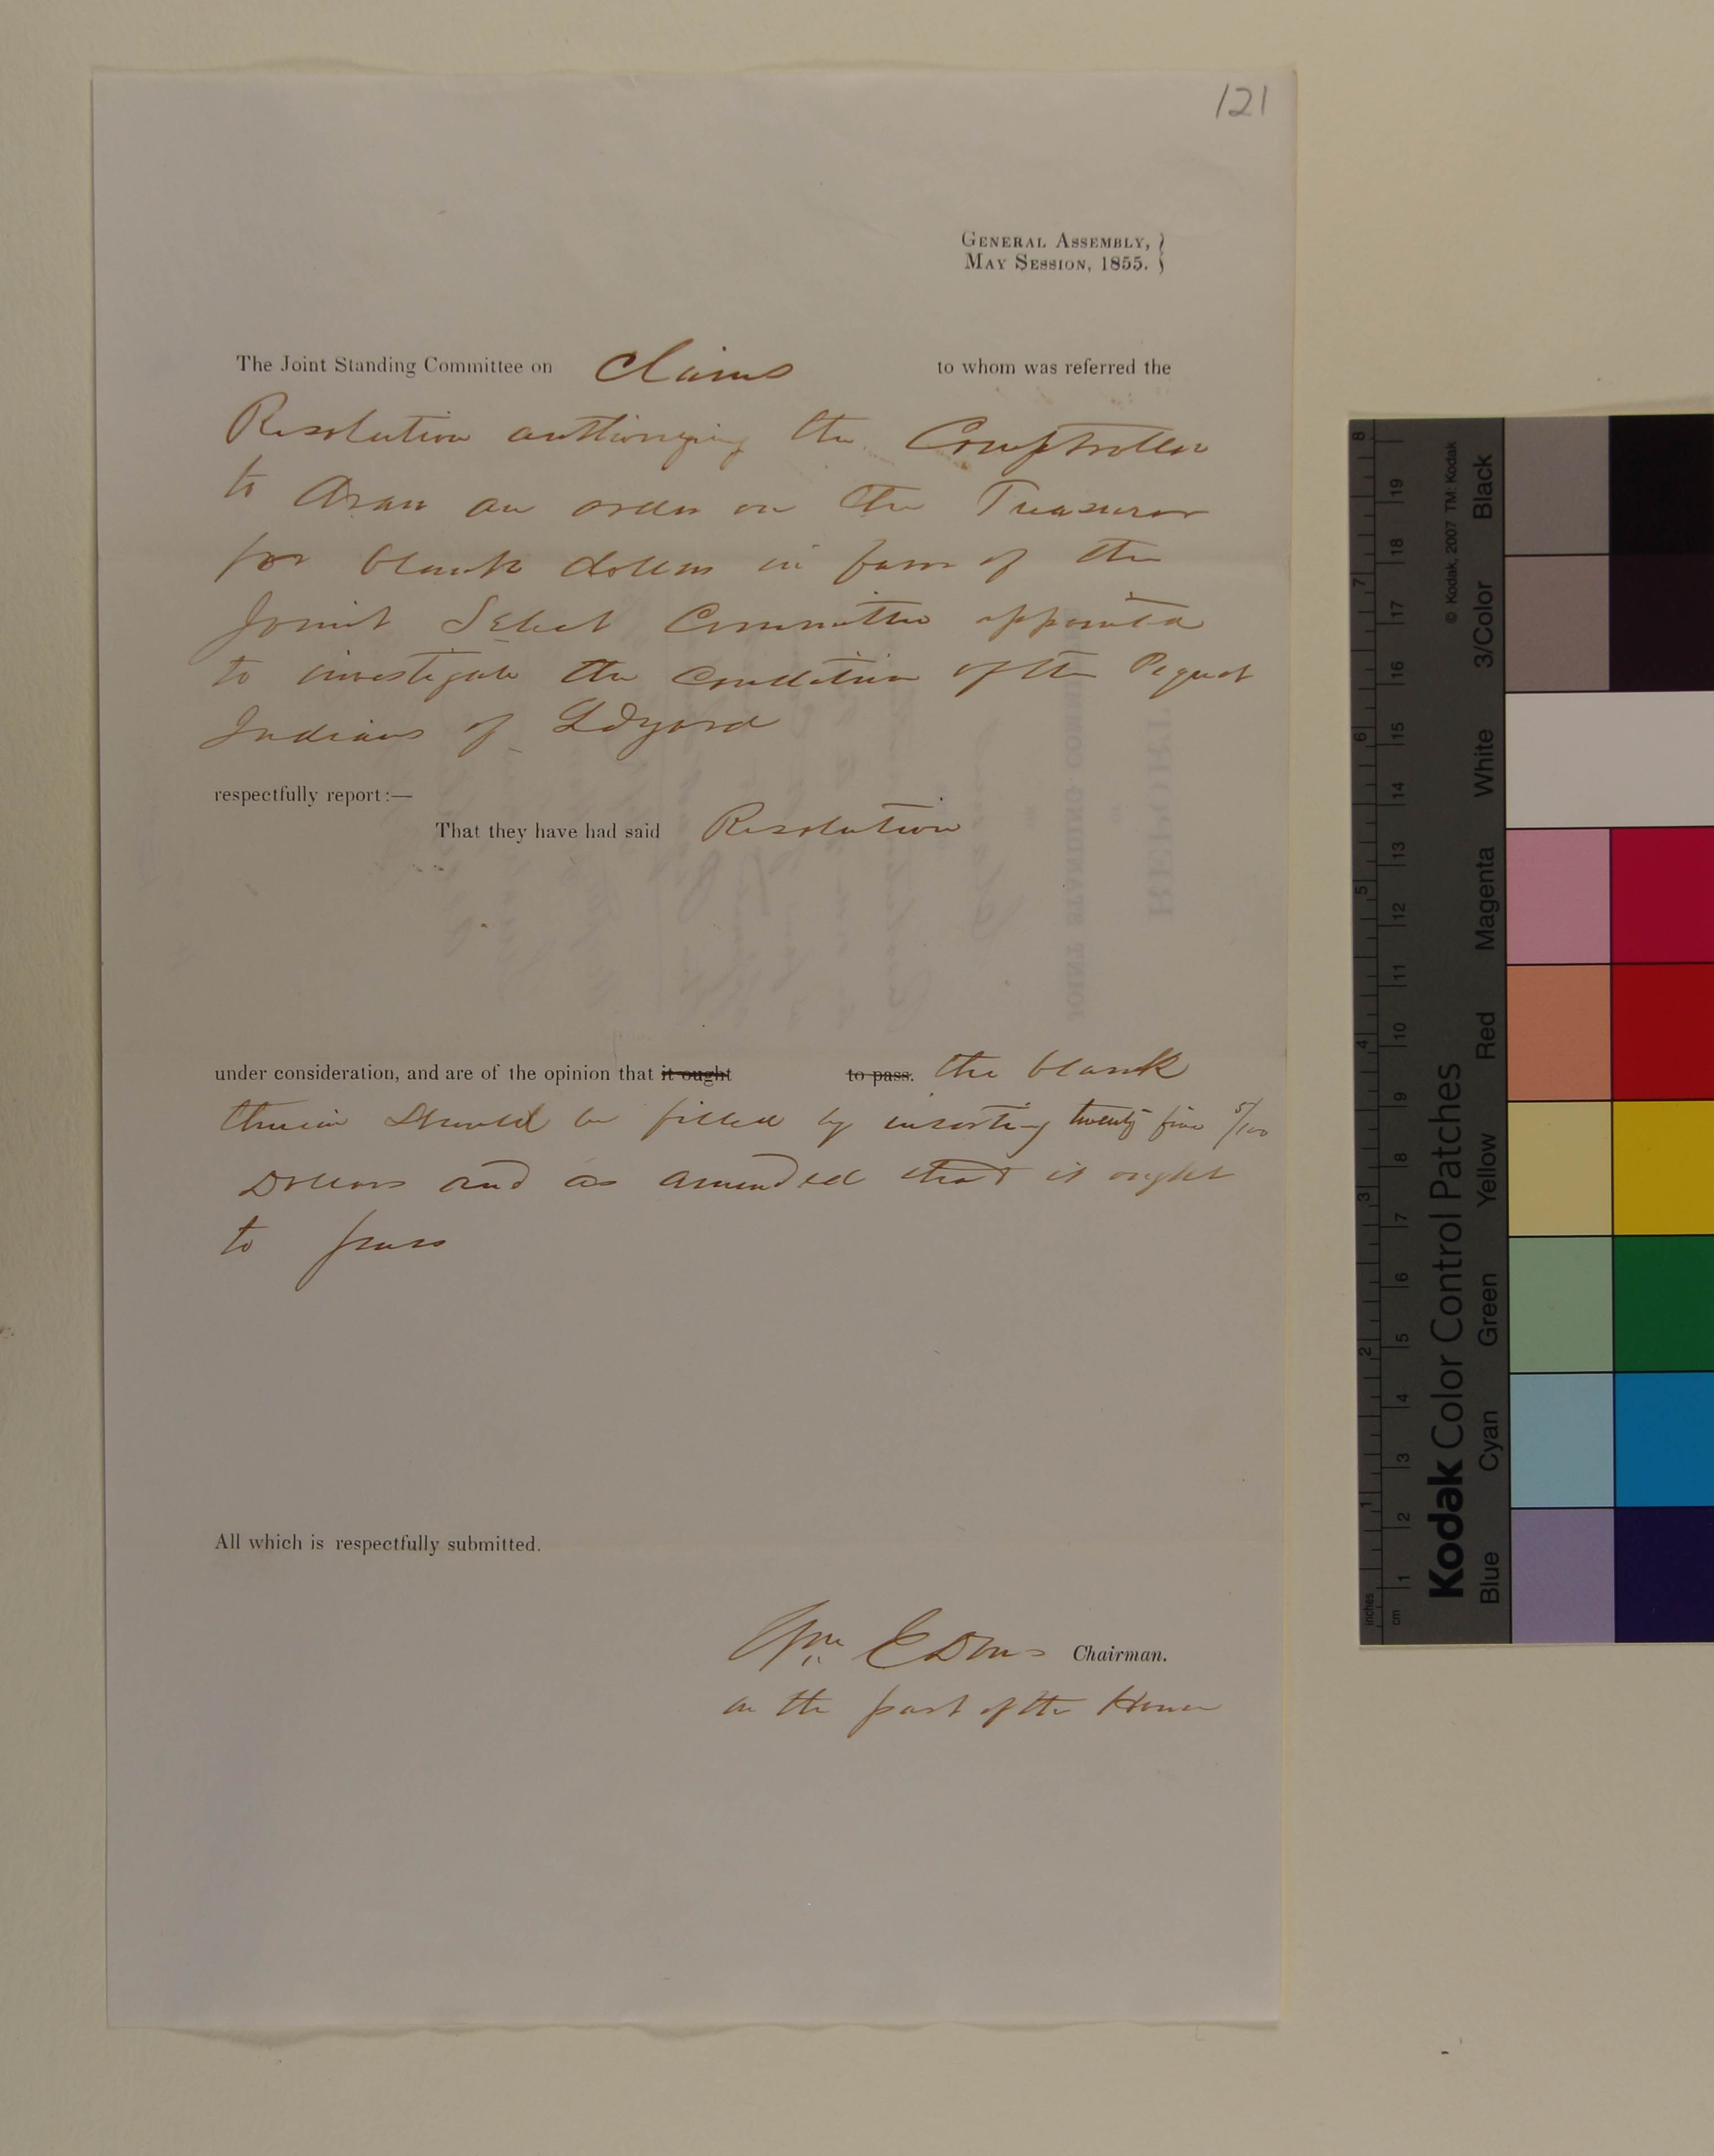 121
GENERAL ASSEMBLY,
MAY SESSION, 1855.
The Joint Standing Committee on Claims to whom was referred the
Resolution authorizing the Comptroller
to draw an order on the Treasurer
for blank dollars in favor of the
Joint Select Committee appointed
to investigate the Condition of the Pequot
Indians of Ledyard
respectfully report:—
That they have had said Resolution
under consideration, and are of the opinion that it ought to pass. the blank
therein should be filled by inserting twenty five 5/100
Dollars and as amended that it ought
to pass
All which is respectfully submitted.
Wm Chairman.
on the part of the House
REPORT
JOINT STANDING COMMITTEE
Kodak Color Control Patches
© Kodak, 2007 TM: Kodak
Blue Cyan Green Yellow Red Magenta White 3/Color Black
inches 1 2 3 4 5 6 7 8
cm 1 2 3 4 5 6 7 8 9 10 11 12 13 14 15 16 17 18 19